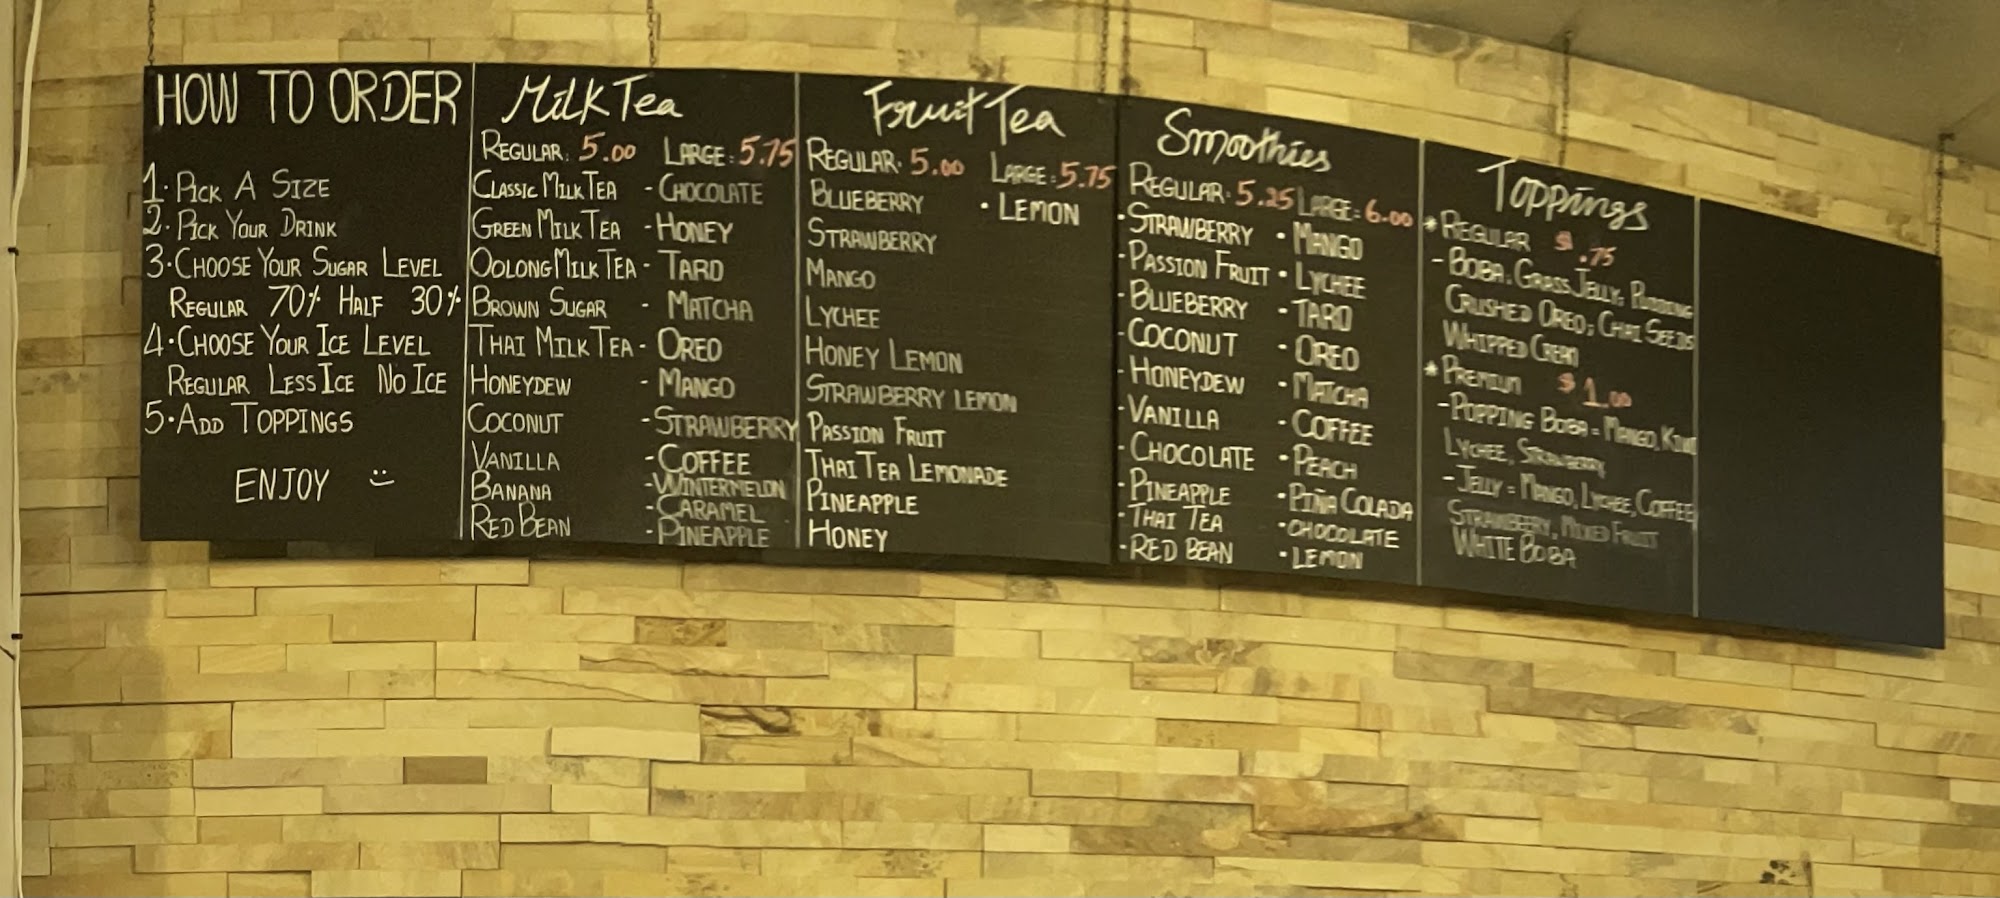 HOW TO ORDER
1. PICK A SIZE
2. PICK YOUR DRINK
3. CHOOSE YOUR SUGAR LEVEL
REGULAR 70% HALF 30%
4. CHOOSE YOUR ICE LEVEL
REGULAR LESS ICE NO ICE
5. ADD TOPPINGS
ENJOY :)
Milk Tea
REGULAR: 5.00 LARGE: 5.75
CLASSIC MILK TEA - CHOCOLATE
GREEN MILK TEA - HONEY
OOLONG MILK TEA - TARO
BROWN SUGAR - MATCHA
THAI MILK TEA - OREO
HONEYDEW - MANGO
COCONUT - STRAWBERRY
VANILLA - COFFEE
BANANA - WINTERMELON
RED BEAN - CARAMEL
- PINEAPPLE
Fruit Tea
REGULAR: 5.00 LARGE: 5.75
BLUEBERRY • LEMON
STRAWBERRY
MANGO
LYCHEE
HONEY LEMON
STRAWBERRY LEMON
PASSION FRUIT
THAI TEA LEMONADE
PINEAPPLE
HONEY
Smoothies
REGULAR: 5.25 LARGE: 6.00
• STRAWBERRY • MANGO
• PASSION FRUIT • LYCHEE
• BLUEBERRY • TARO
• COCONUT • OREO
• HONEYDEW • MATCHA
• VANILLA • COFFEE
• CHOCOLATE • PEACH
• PINEAPPLE • PIÑA COLADA
• THAI TEA • CHOCOLATE
• RED BEAN • LEMON
Toppings
* REGULAR $ .75
- BOBA, GRASS JELLY, PUDDING
CRUSHED OREO, CHAI SEEDS
WHIPPED CREAM
* PREMIUM $ 1.00
- POPPING BOBA = MANGO, KIWI
LYCHEE, STRAWBERRY
- JELLY = MANGO, LYCHEE, COFFEE
STRAWBERRY, MIXED FRUIT
WHITE BOBA